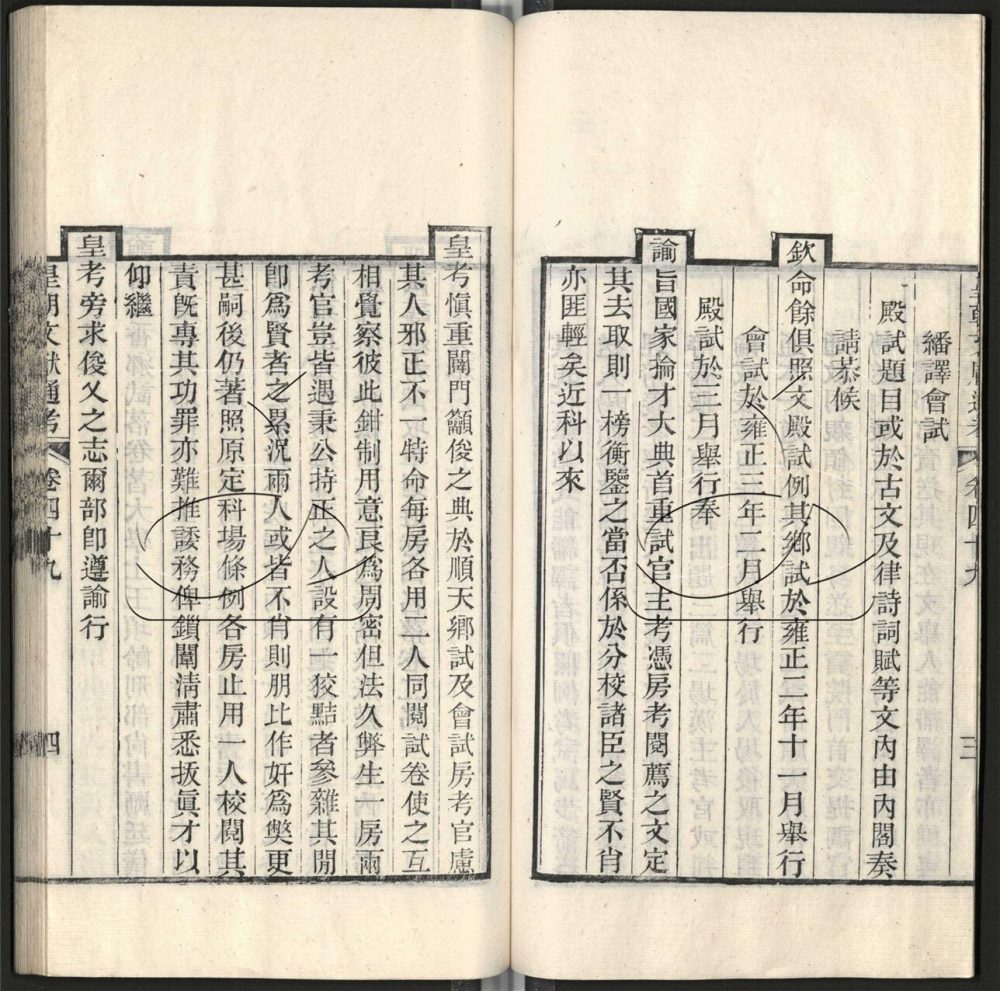 皇朝文獻通考 卷四十九 三
繙譯會試
殿試題目或於古文及律詩詞賦等文內由內閣奏
請恭候
欽命餘俱照文殿試例其鄉試於雍正二年十一月舉行
會試於雍正三年二月舉行
殿試於三月舉行奉
諭旨國家掄才大典首重試官主考憑房考閱薦之文定
其去取則一榜衡鑒之當否係於分校諸臣之賢不肖
亦匪輕矣近科以來
皇考愼重闢門籲俊之典於順天鄉試及會試房考官慮
其人邪正不一特命每房各用二人同閱試卷使之互
相覺察彼此鉗制用意良爲周密但法久弊生一房兩
考官豈皆遇秉公持正之人設有一狡黠者參雜其閒
卽爲賢者之累況兩人或皆不肖則朋比作奸爲獘更
甚嗣後仍著照原定科場條例各房止用一人校閱其
責旣專其功罪亦難推諉務俾鎖闈淸肅悉拔眞才以
仰繼
皇考旁求俊乂之志爾部卽遵諭行
皇朝文獻通考 卷四十九 四